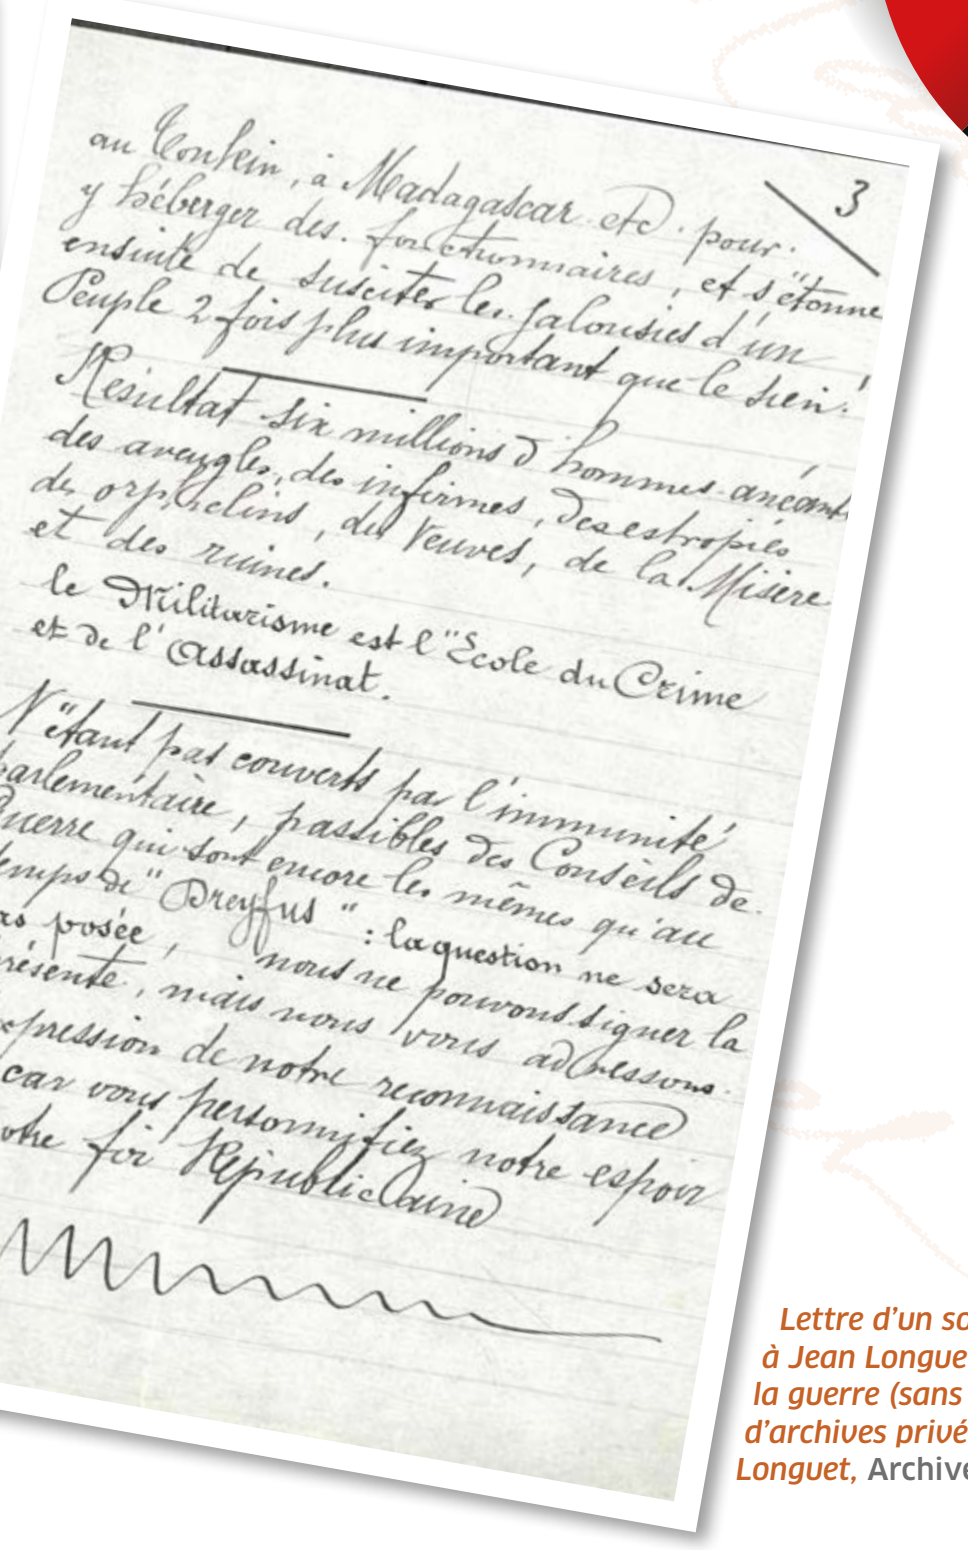 3
au Tonkin, à Madagascar etc. pour
y héberger des fonctionnaires, et s'étonne
ensuite de susciter les jalousies d'un
Peuple 2 fois plus important que le sien!
Résultat six millions d'hommes anéant
des aveugles, des infirmes, des estropiés
des orphelins, des Veuves, de la Misère
et des ruines.
le Militarisme est l'École du Crime
et de l'Assassinat.
N'étant pas couverts par l'immunité
parlementaire, passibles des Conseils de
Guerre qui sont encore les mêmes qu'au
temps de "Dreyfus" : la question ne sera
as posée, nous ne pouvons signer la
résente, mais nous vous adressons
xpression de notre reconnaissance
car vous personnifiez notre espoir
otre foi Républicaine
Lettre d'un so
à Jean Longue
la guerre (sans
d'archives privé
Longuet, Archive